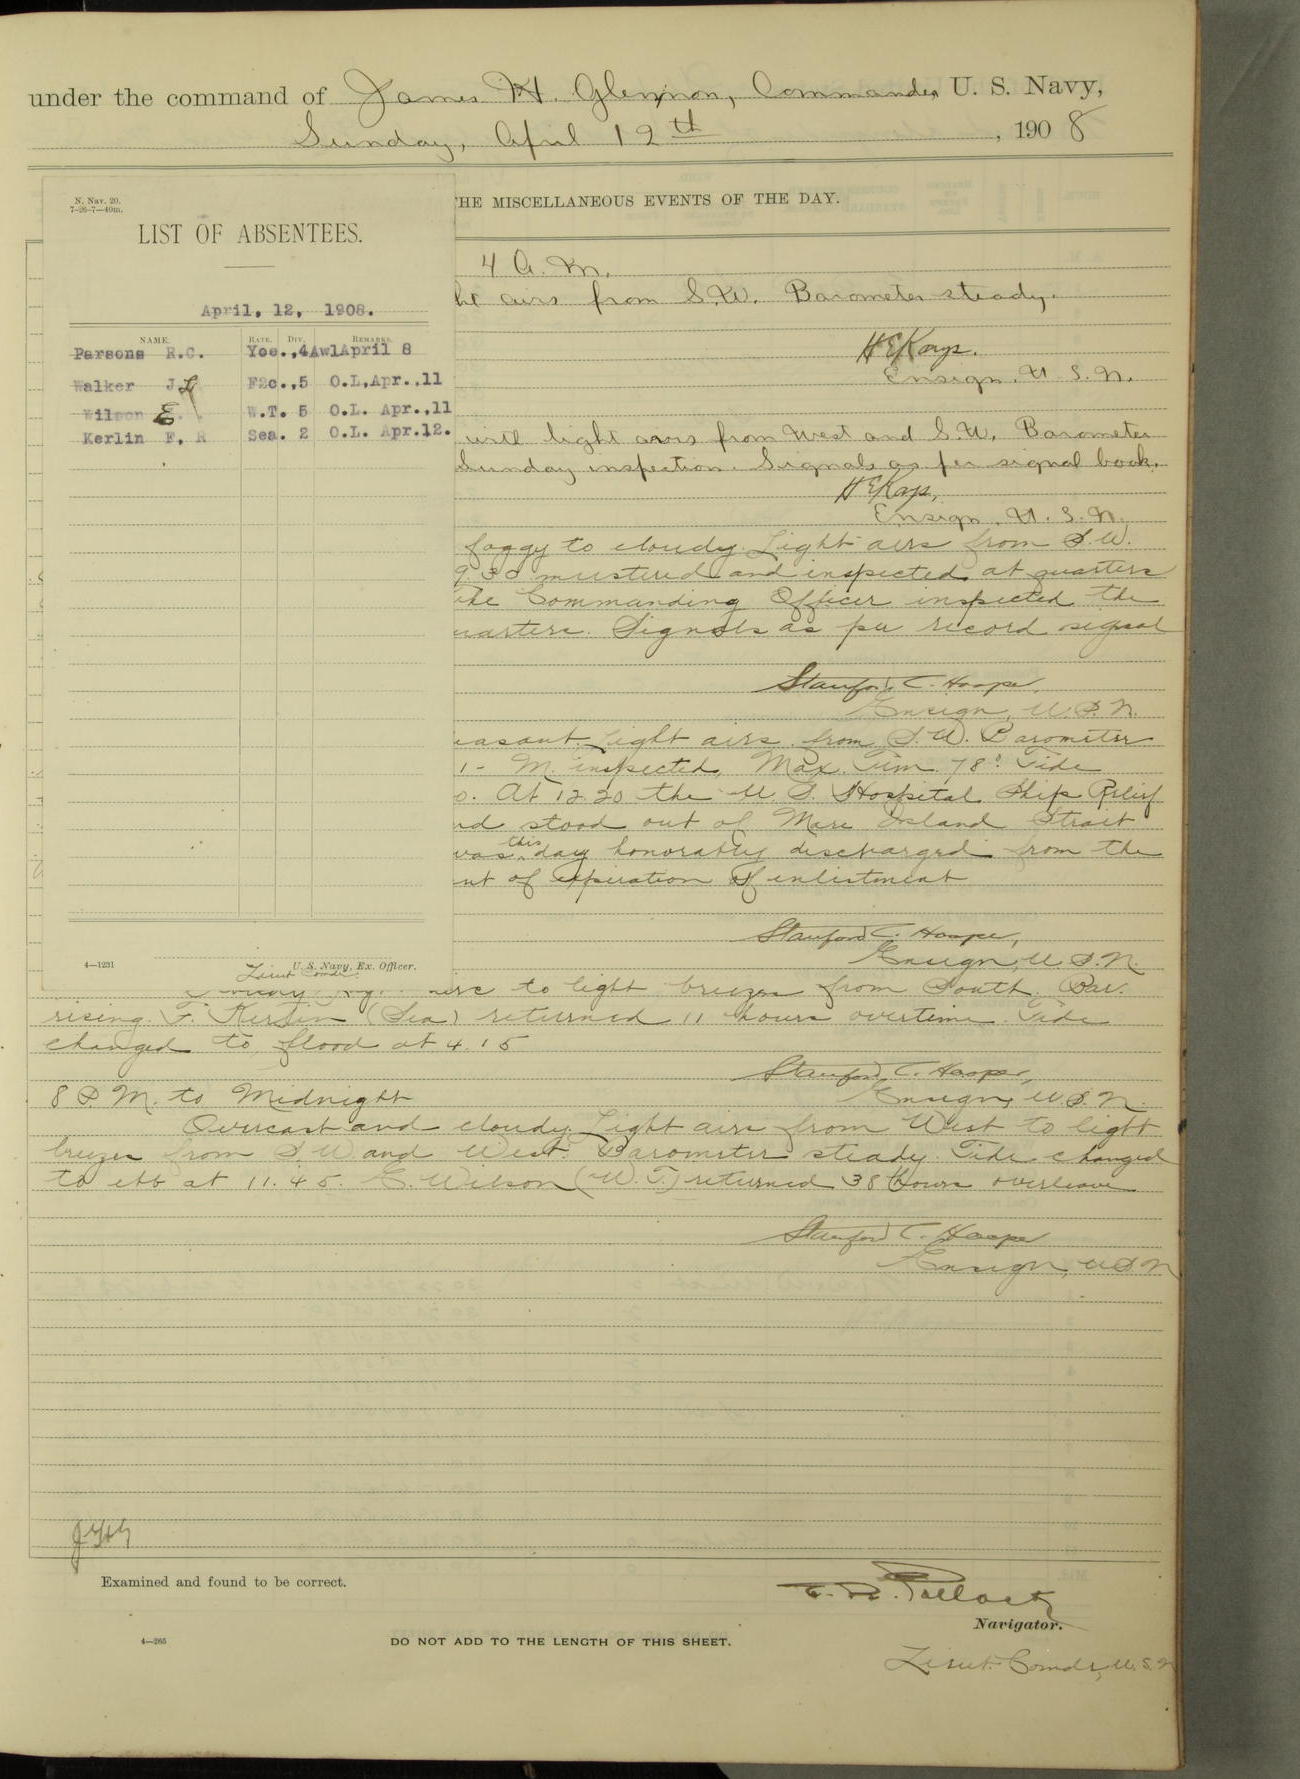 under the command of James H. Glennon, Commander, U. S. Navy,
Sunday, April 12th, 1908
THE MISCELLANEOUS EVENTS OF THE DAY.
N. Nav. 20.
7-26-7—40m.
LIST OF ABSENTEES.
April, 12, 1908.
NAME. RATE. DIV. REMARKS.
Parsons R.C. Yoe.,4 AwlApril 8
Walker J. F2c.,5 O.L,Apr.,11
Wilson E. W.T. 5 O.L. Apr.,11
Kerlin F. R Sea. 2 O.L. Apr.12.
4—1231
Lieut Comdr.
U. S. Navy, Ex. Officer.
4 A. M.
airs from S.W. Barometer steady.
H E Kays.
Ensign, U. S. N.
with light airs from West and S.W. Barometer
Sunday inspection. Signals as per signal book.
H E Kays,
Ensign, U. S. N.
foggy to cloudy. Light airs from S.W.
9.30 mustered and inspected at quarters
the Commanding Officer inspected the
quarters. Signals as per record signal
Stanford C. Hooper,
Ensign, U.S.N.
Light airs from S.W. Barometer
M. inspected, Max. Tem. 78°. Tide
At 12.20 the U. S. Hospital Ship Relief
and stood out of Mare Island Strait
was this day honorably discharged from the
of expiration of enlistment
Stanford C. Hooper,
Ensign, U.S.N.
airs to light breezes from South. Bar.
rising. F. Kerlin (Sea) returned 11 hours overtime. Tide
changed to flood at 4.15
Stanford C. Hooper,
Ensign, U.S.N.
8 P.M. to Midnight
Overcast and cloudy. Light airs from West to light
breezes from S.W. and West. Barometer steady. Tide changed
to ebb at 11.45. E. Wilson (W.T.) returned 38 hours overleave
Stanford C. Hooper
Ensign, U.S.N
Examined and found to be correct.
Navigator.
Lieut. Comdr, U.S.N
4—265
DO NOT ADD TO THE LENGTH OF THIS SHEET.